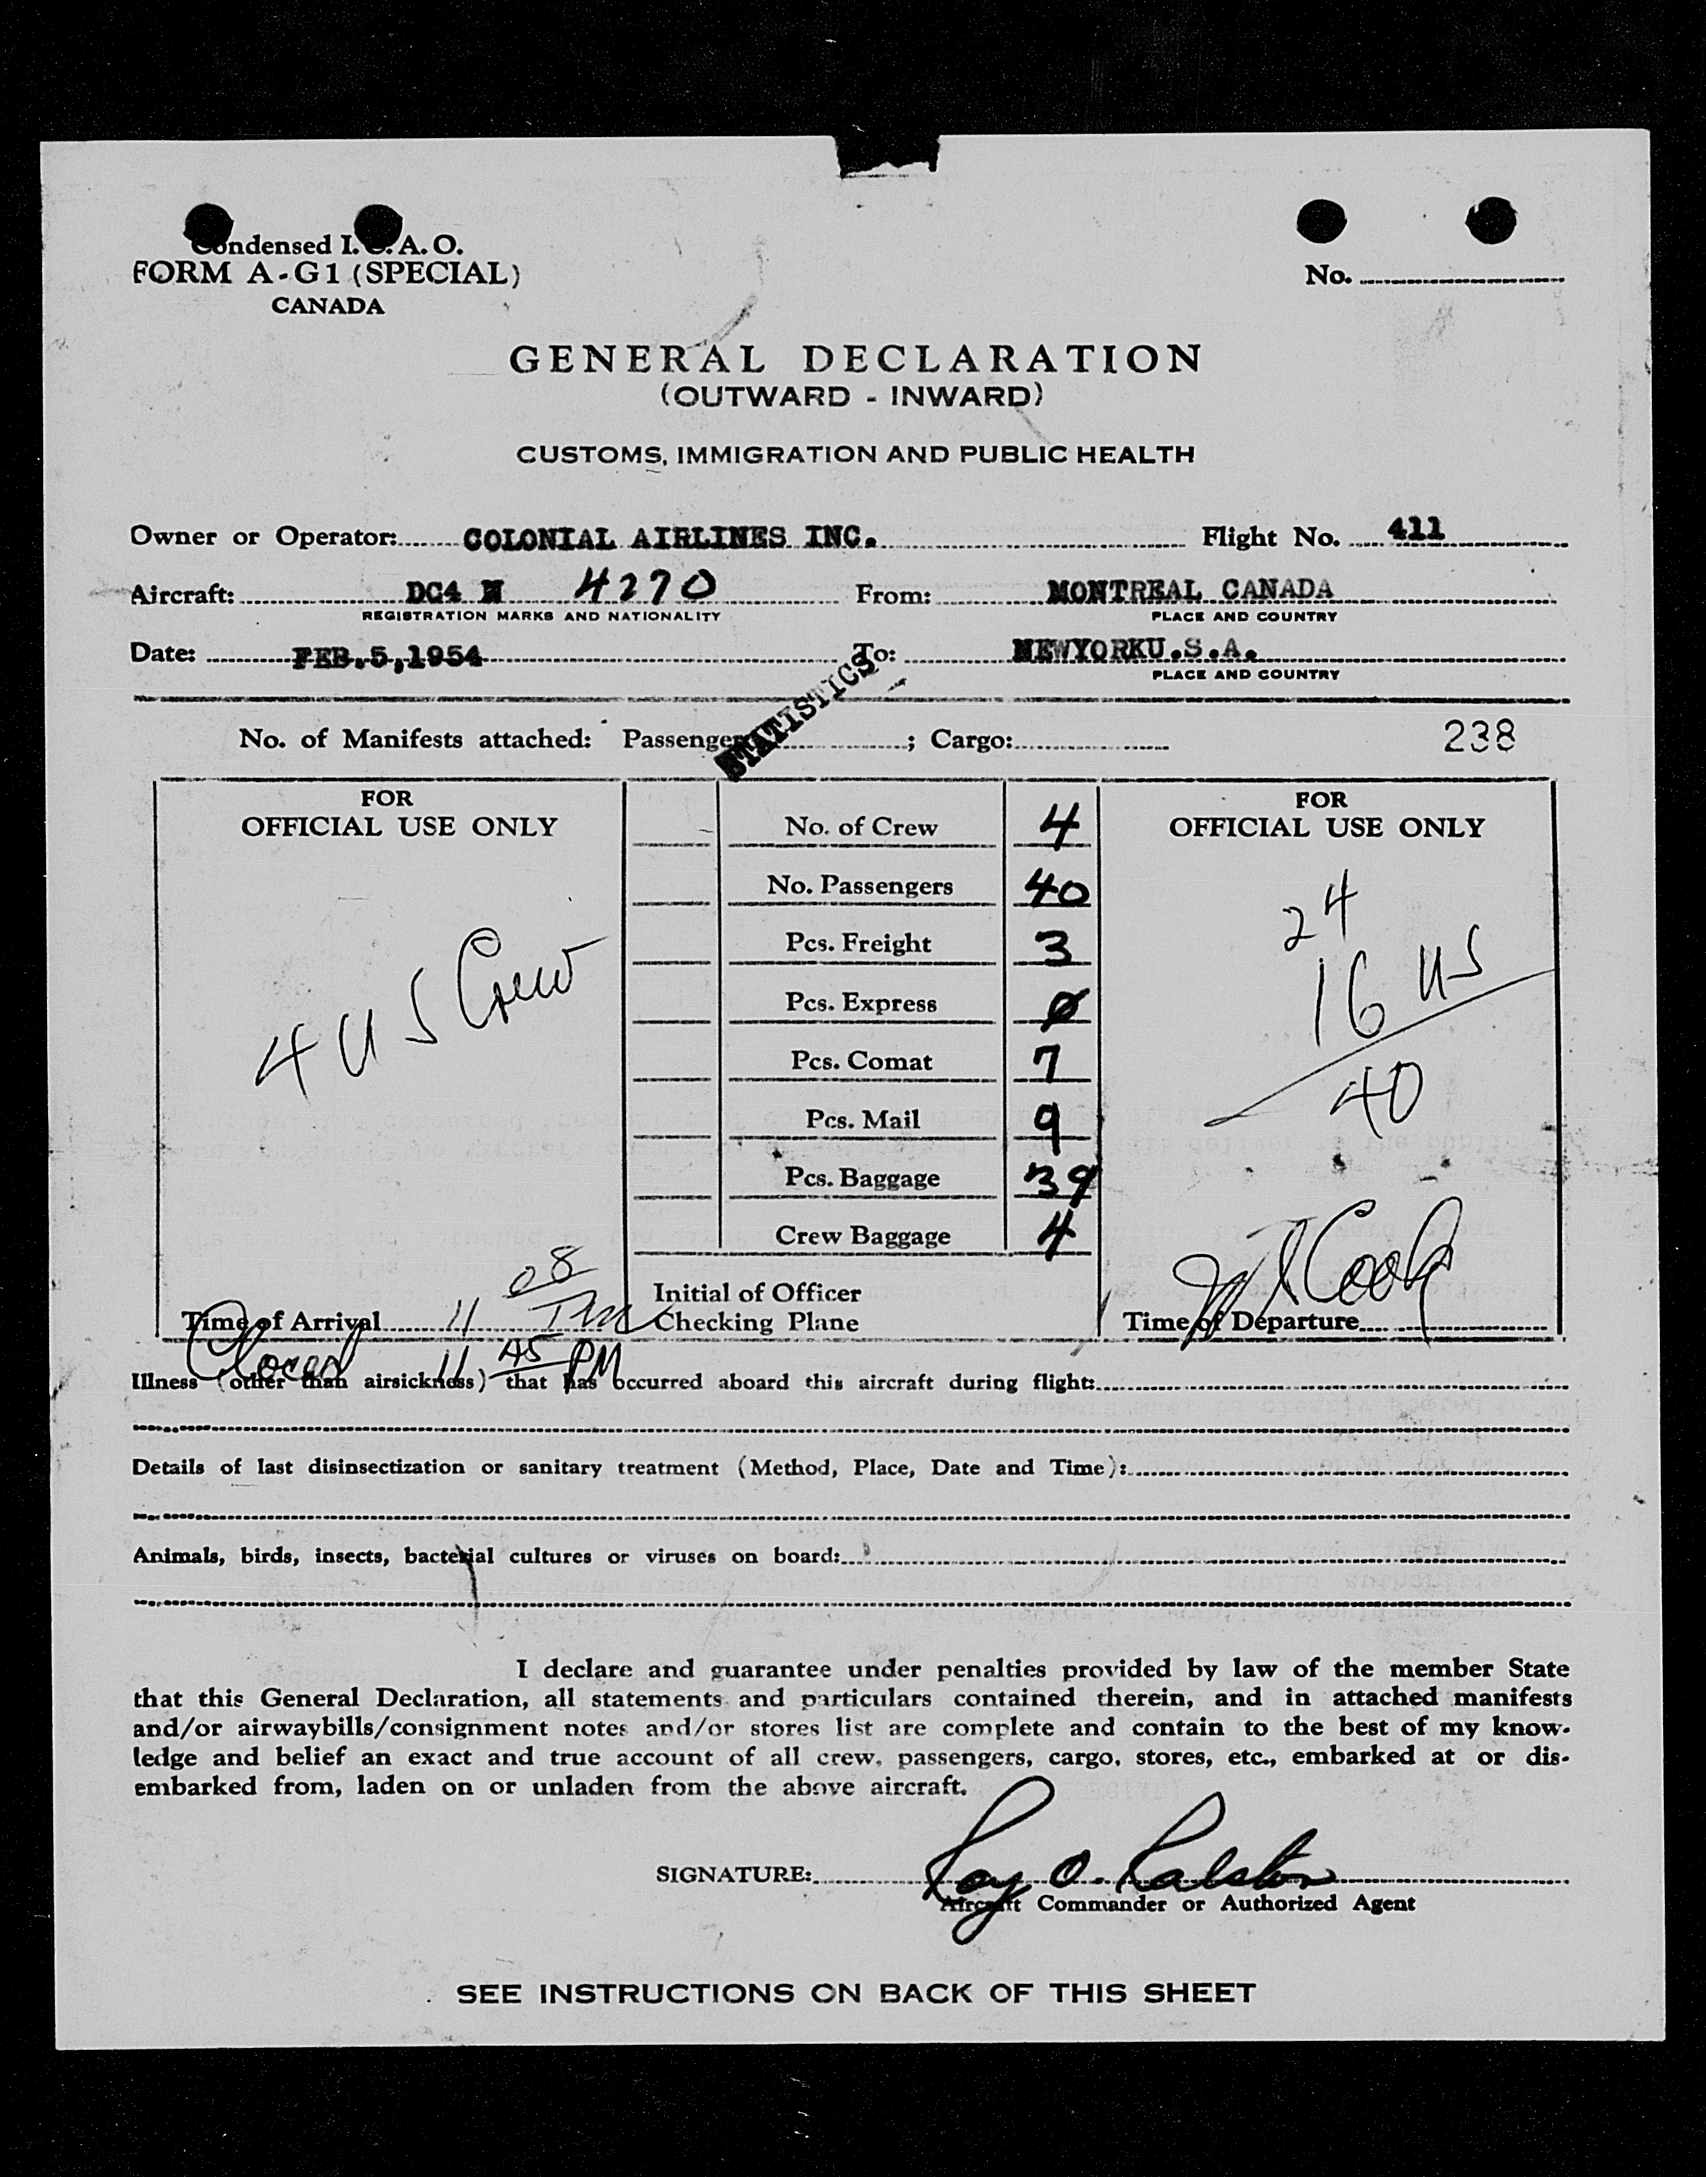 Condensed I.C.A.O.
FORM A-G1 (SPECIAL)
CANADA
No.
GENERAL DECLARATION
(OUTWARD - INWARD)
CUSTOMS, IMMIGRATION AND PUBLIC HEALTH
Owner or Operator: COLONIAL AIRLINES INC. Flight No. 411
Aircraft: DC4 N 4270 From: MONTREAL CANADA
REGISTRATION MARKS AND NATIONALITY PLACE AND COUNTRY
Date: FEB.5,1954 To: NEWYORKU.S.A.
PLACE AND COUNTRY
STATISTICS
No. of Manifests attached: Passenger ; Cargo: 238
FOR
OFFICIAL USE ONLY
4 US Crew
No. of Crew 4
No. Passengers 40
Pcs. Freight 3
Pcs. Express 0
Pcs. Comat 7
Pcs. Mail 9
Pcs. Baggage 39
Crew Baggage 4
FOR
OFFICIAL USE ONLY
24
16 US
40
Cook
Time of Arrival 11 08 PM
Initial of Officer
Checking Plane
Time of Departure
11 45 PM
Illness (other than airsickness) that has occurred aboard this aircraft during flight:
Details of last disinsectization or sanitary treatment (Method, Place, Date and Time):
Animals, birds, insects, bacterial cultures or viruses on board:
I declare and guarantee under penalties provided by law of the member State
that this General Declaration, all statements and particulars contained therein, and in attached manifests
and/or airwaybills/consignment notes and/or stores list are complete and contain to the best of my know-
ledge and belief an exact and true account of all crew, passengers, cargo, stores, etc., embarked at or dis-
embarked from, laden on or unladen from the above aircraft.
SIGNATURE: Roy O. Ralston
Aircraft Commander or Authorized Agent
SEE INSTRUCTIONS ON BACK OF THIS SHEET